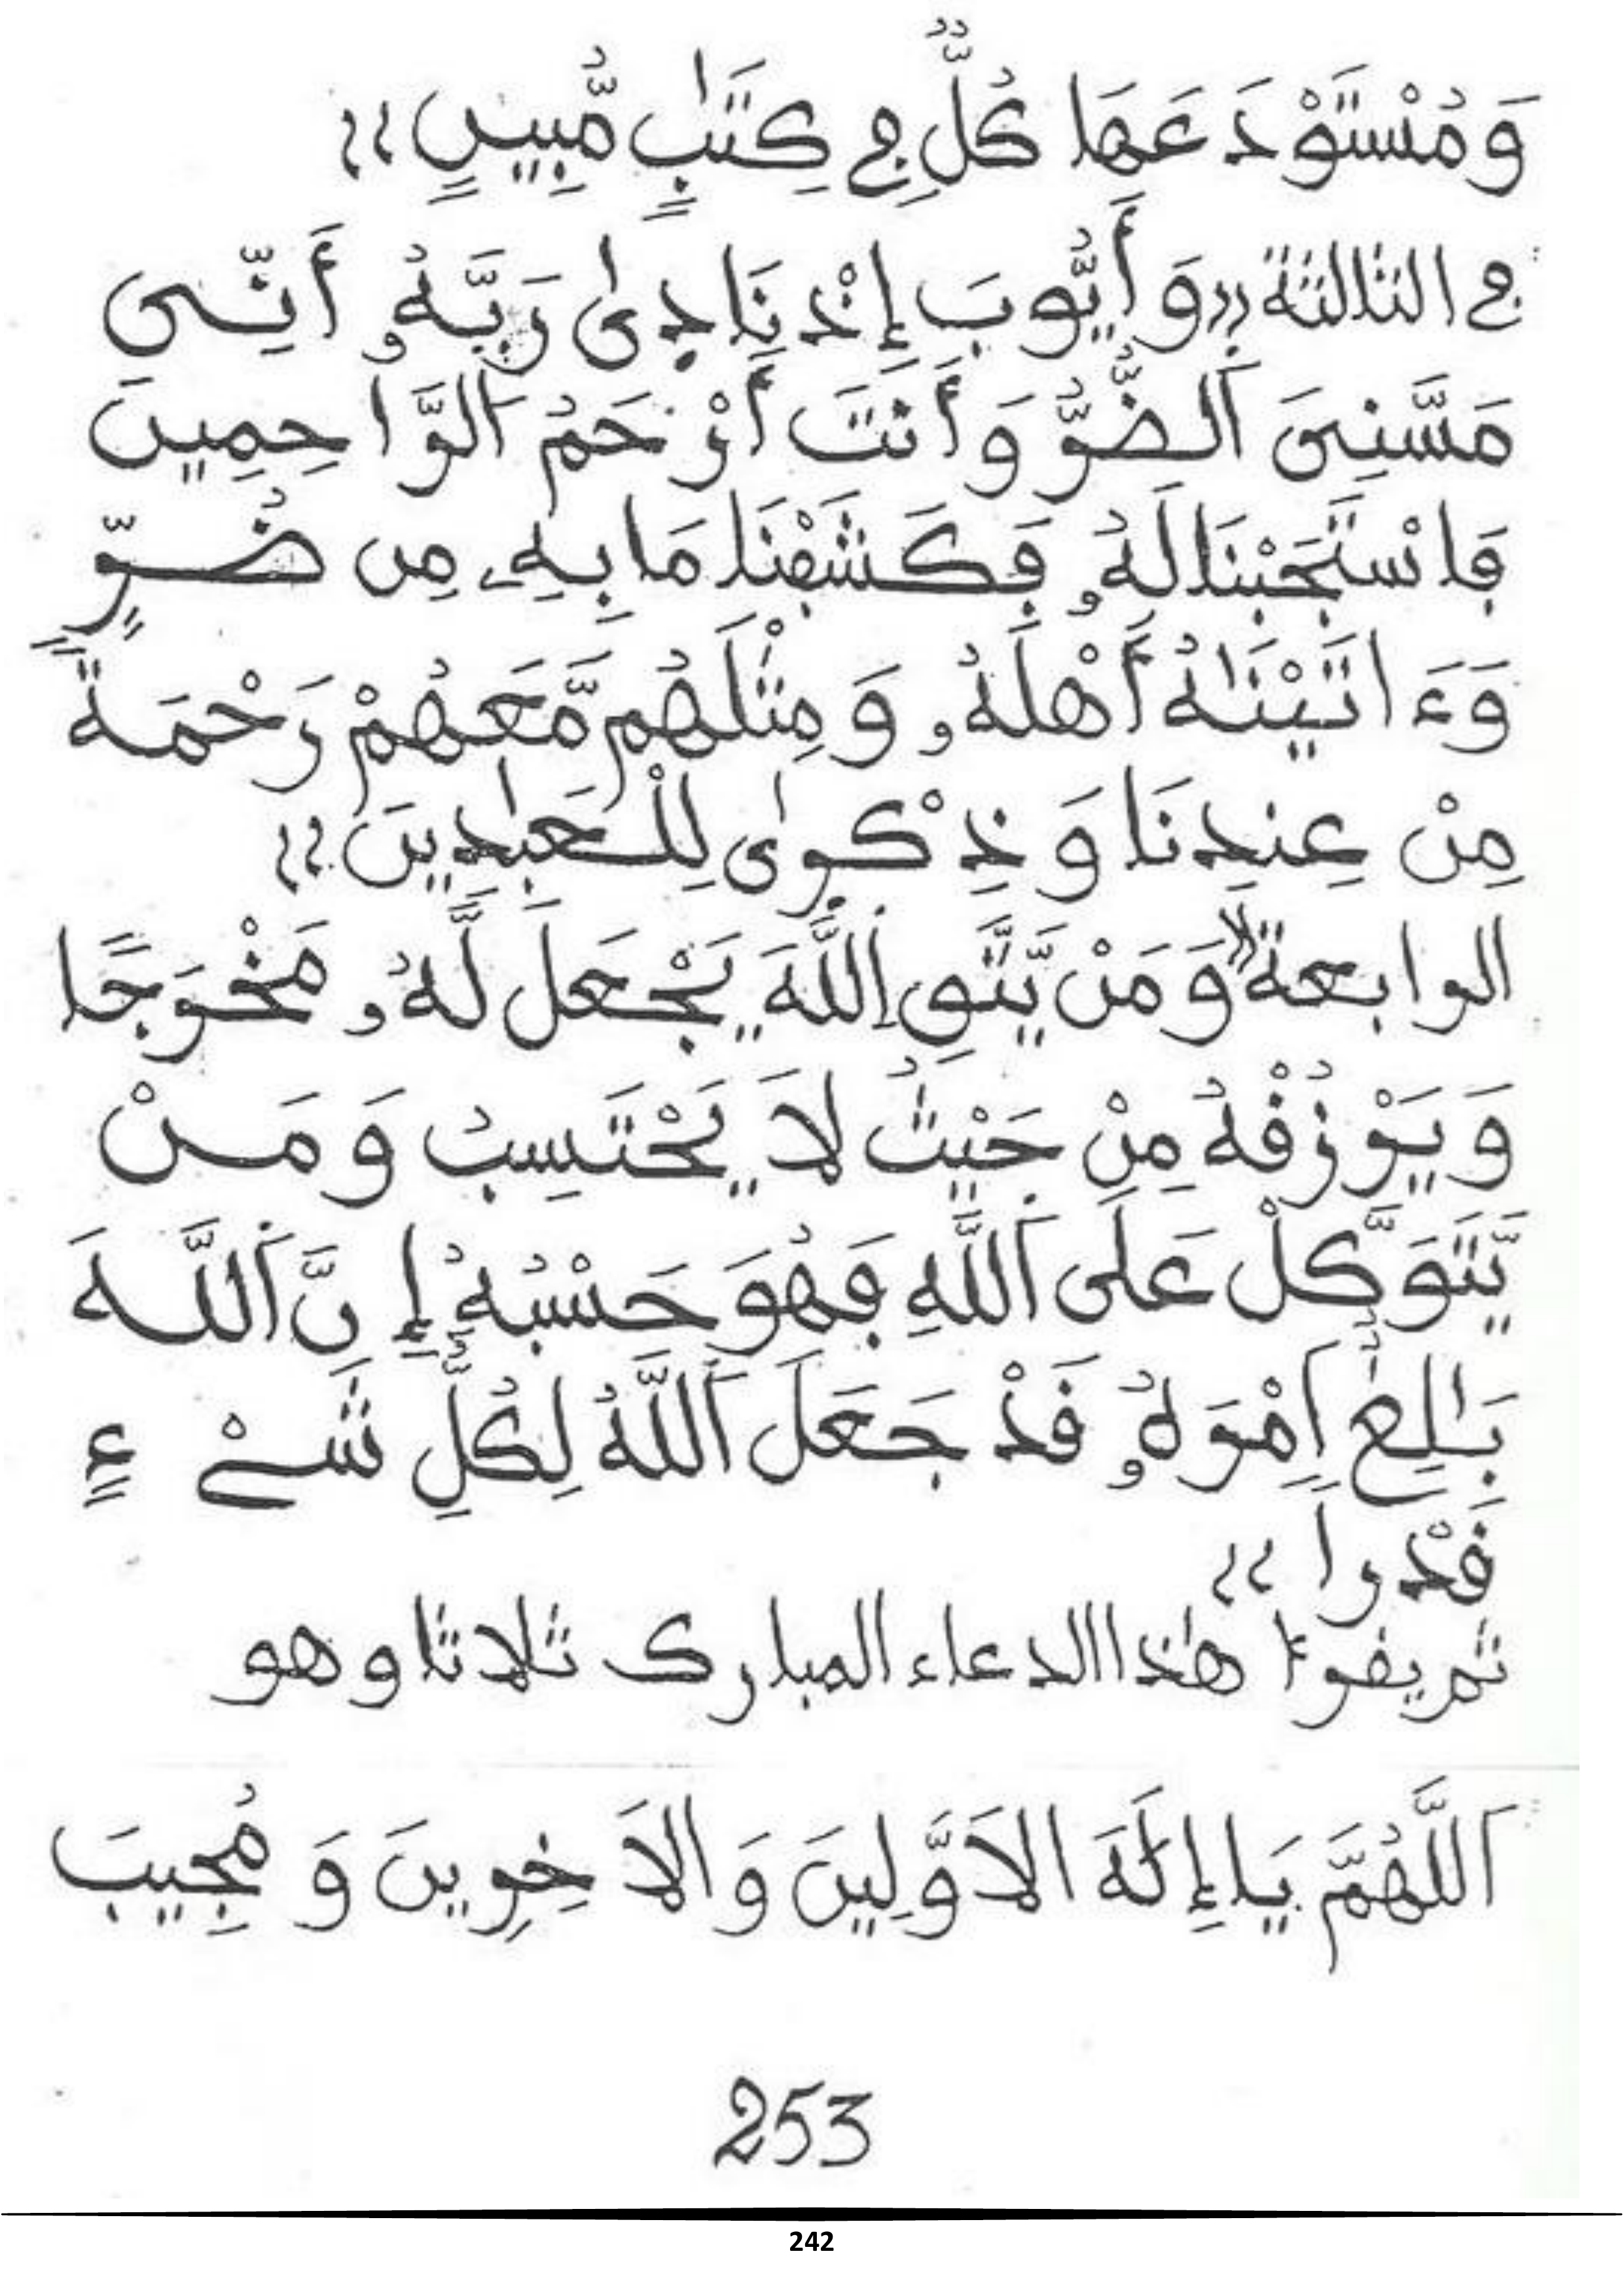 وَمُسْتَوْدَعَهَا كُلٌّ فِي كِتَٰبٍ مُّبِينٍ»
في الثالثة «وَأَيُّوبَ إِذْ نَادَىٰ رَبَّهُۥ أَنِّى
مَسَّنِىَ ٱلضُّرُّ وَأَنتَ أَرْحَمُ ٱلرَّاحِمِينَ
فَاسْتَجَبْنَا لَهُۥ فَكَشَفْنَا مَا بِهِۦ مِن ضُرٍّ
وَءَاتَيْنَٰهُ أَهْلَهُۥ وَمِثْلَهُم مَّعَهُمْ رَحْمَةً
مِنْ عِندِنَا وَذِكْرَىٰ لِلْعَٰبِدِينَ»
الرابعة «وَمَنْ يَّتَّقِ ٱللَّهَ يَجْعَل لَّهُۥ مَخْرَجًا
وَيَرْزُقْهُ مِنْ حَيْثُ لَا يَحْتَسِبُ وَمَنْ
يَّتَوَكَّلْ عَلَى ٱللَّهِ فَهُوَ حَسْبُهُ إِنَّ ٱللَّهَ
بَٰلِغٌ اَمْرَهُۥ قَدْ جَعَلَ ٱللَّهُ لِكُلِّ شَىْءٍ
قَدْراً»
ثم يقرء هٰذا الدعاء المبارك ثلاثا وهو
اَللَّهُمَّ يَا إِلَٰهَ الاَوَّلِينَ وَالاَخِرِينَ وَمُجِيبَ
253
242